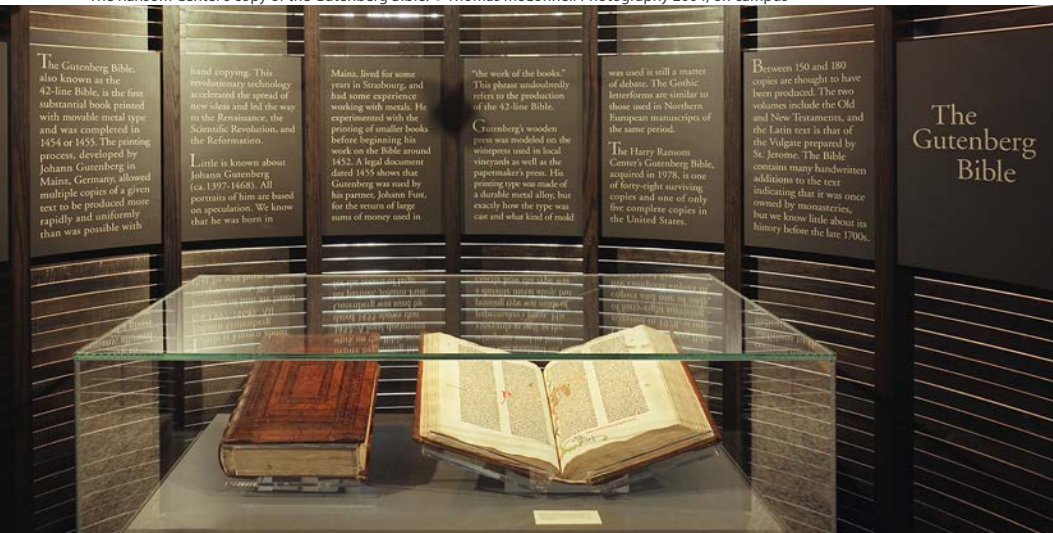 The Ransom Center's copy of the Gutenberg Bible. Thomas McConnell Photography 2004, on campus
The Gutenberg Bible,
also known as the
42-line Bible, is the first
substantial book printed
with movable metal type
and was completed in
1454 or 1455. The printing
process, developed by
Johann Gutenberg in
Mainz, Germany, allowed
multiple copies of a given
text to be produced more
rapidly and uniformly
than was possible with
hand copying. This
revolutionary technology
accelerated the spread of
new ideas and led the way
to the Renaissance, the
Scientific Revolution, and
the Reformation.
Little is known about
Johann Gutenberg
(ca. 1397-1468). All
portraits of him are based
on speculation. We know
that he was born in
Mainz, lived for some
years in Strasbourg, and
had some experience
working with metals. He
experimented with the
printing of smaller books
before beginning his
work on the Bible around
1452. A legal document
dated 1455 shows that
Gutenberg was sued by
his partner, Johann Fust,
for the return of large
sums of money used in
"the work of the books."
This phrase undoubtedly
refers to the production
of the 42-line Bible.
Gutenberg's wooden
press was modeled on the
winepress used in local
vineyards as well as the
papermaker's press. His
printing type was made of
a durable metal alloy, but
exactly how the type was
cast and what kind of mold
was used is still a matter
of debate. The Gothic
letterforms are similar to
those used in Northern
European manuscripts of
the same period.
The Harry Ransom
Center's Gutenberg Bible,
acquired in 1978, is one
of forty-eight surviving
copies and one of only
five complete copies in
the United States.
Between 150 and 180
copies are thought to have
been produced. The two
volumes include the Old
and New Testaments, and
the Latin text is that of
the Vulgate prepared by
St. Jerome. The Bible
contains many handwritten
additions to the text
indicating that it was once
owned by monasteries,
but we know little about its
history before the late 1700s.
The
Gutenberg
Bible